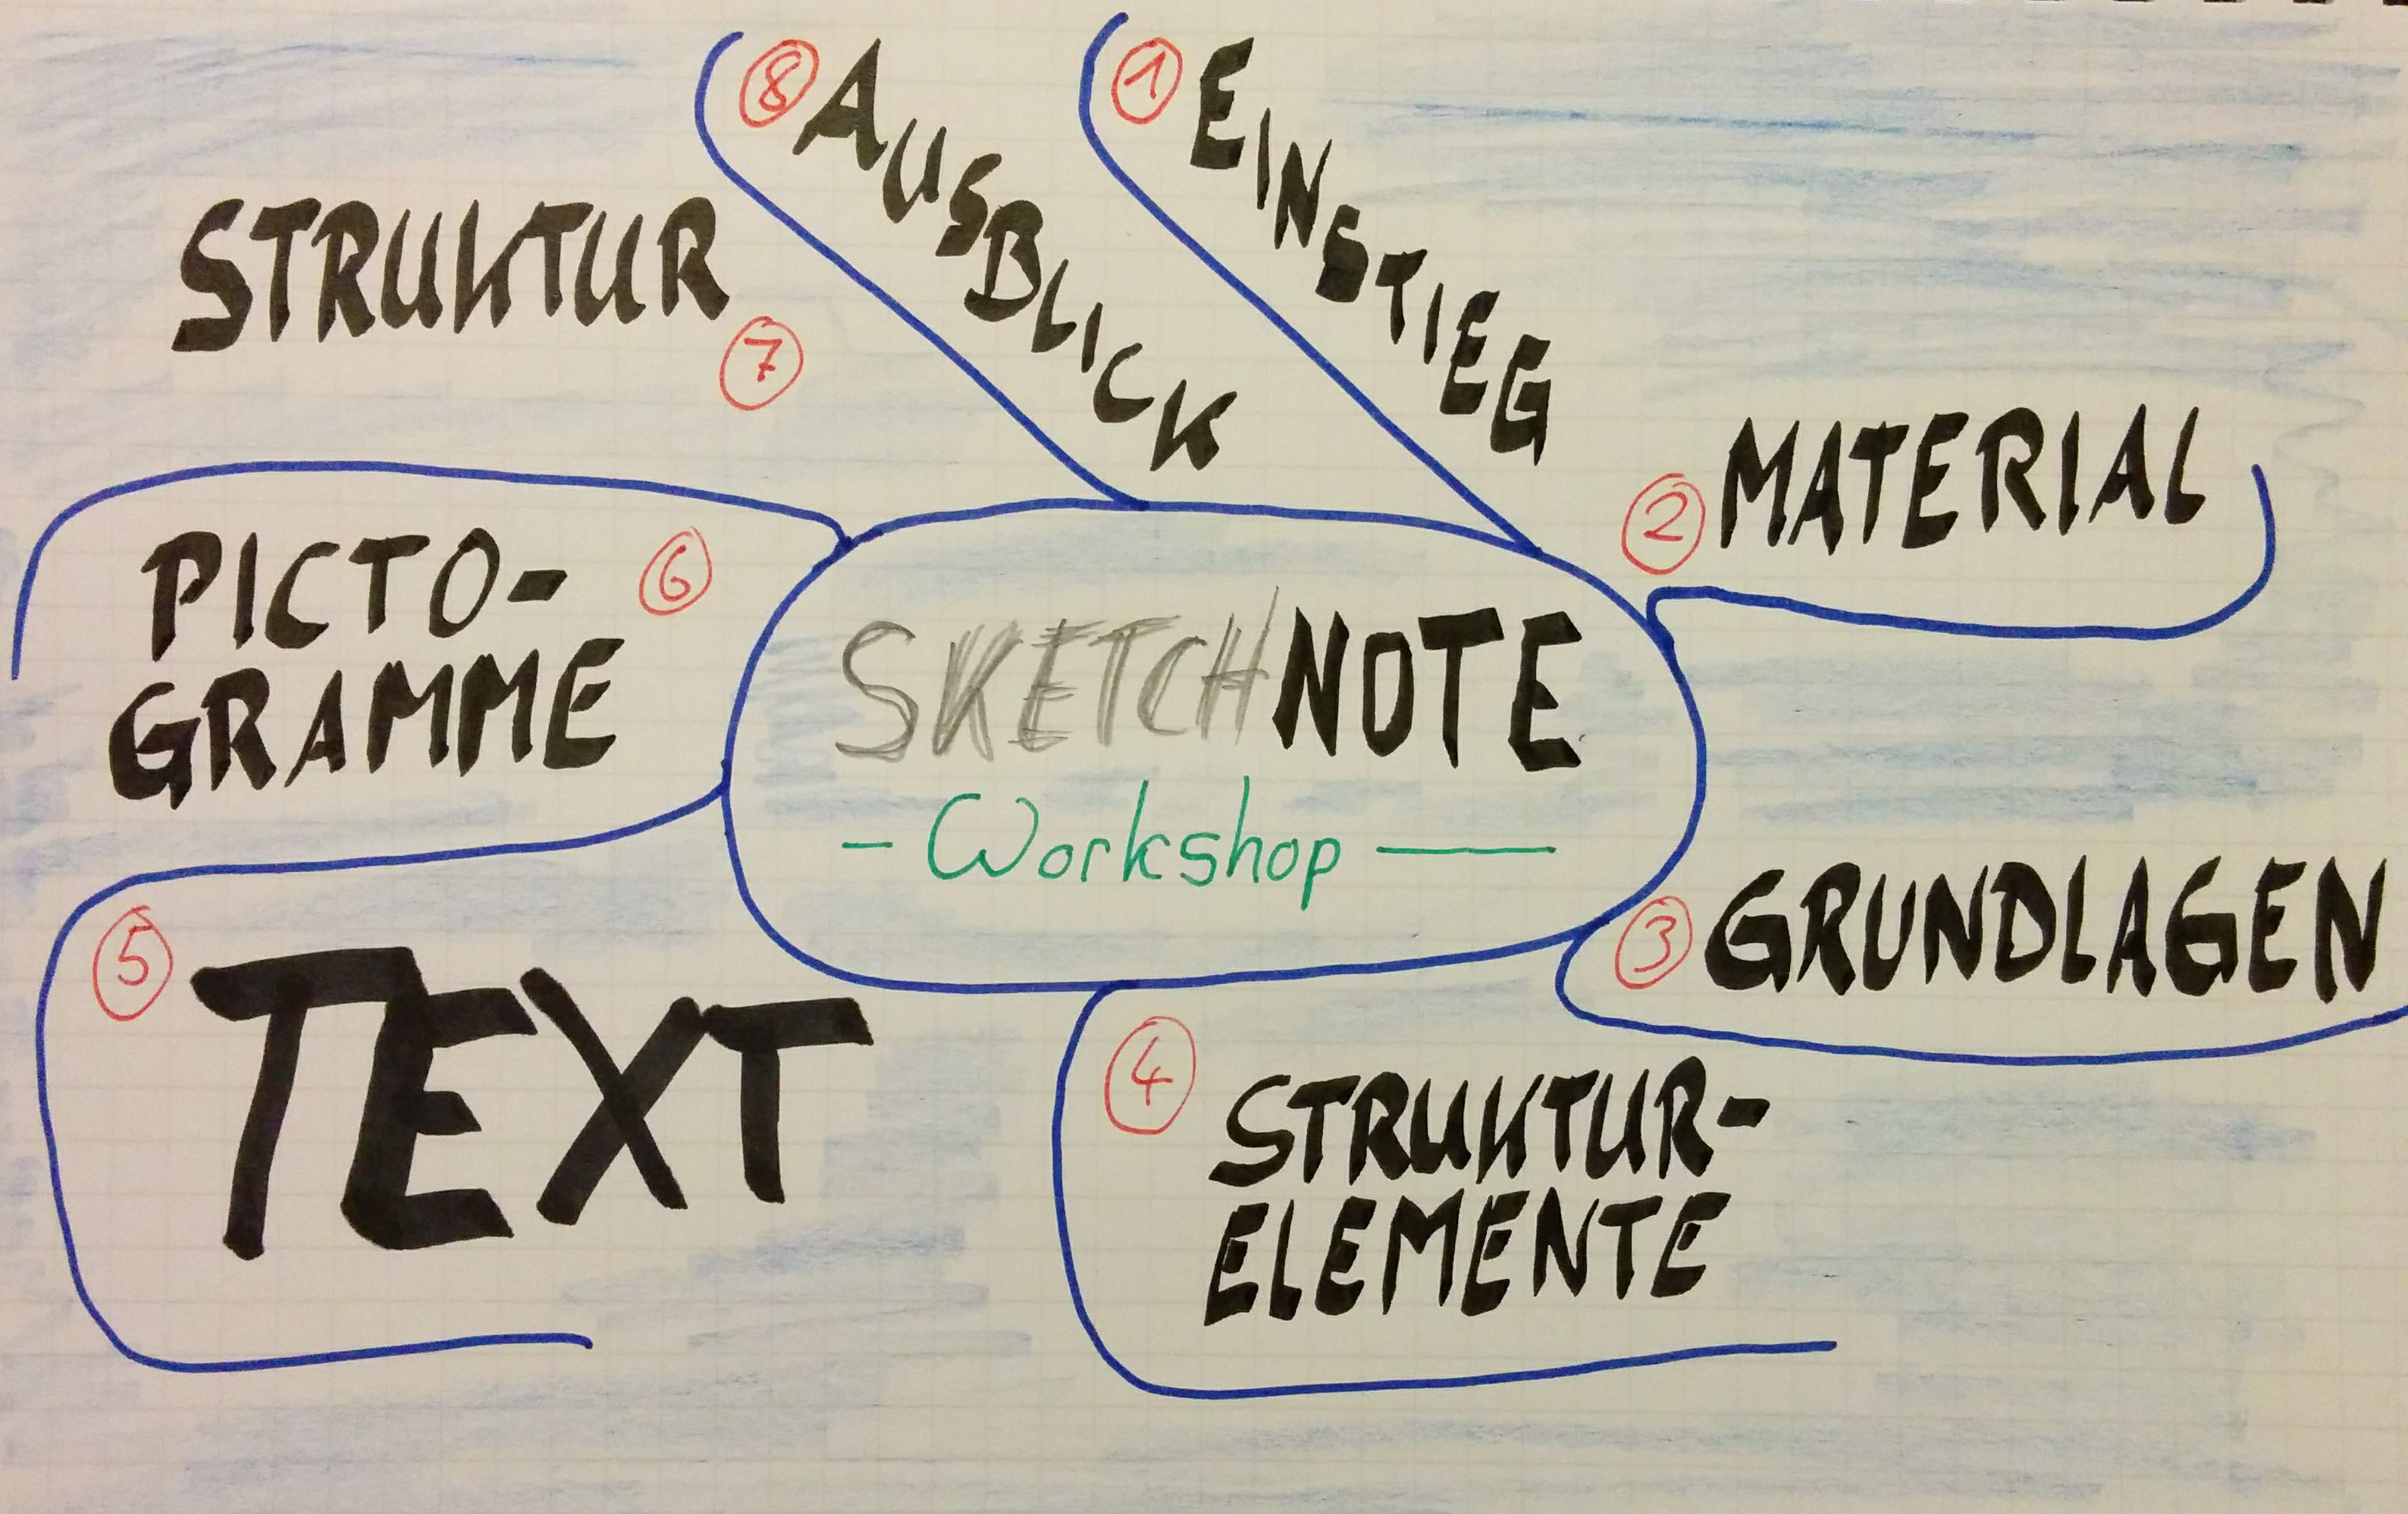 SKETCHNOTE
- Workshop -
① EINSTIEG
② MATERIAL
③ GRUNDLAGEN
④ STRUKTUR-
ELEMENTE
⑤ TEXT
PICTO- ⑥
GRAMME
STRUKTUR
⑦
⑧ AUSBLICK